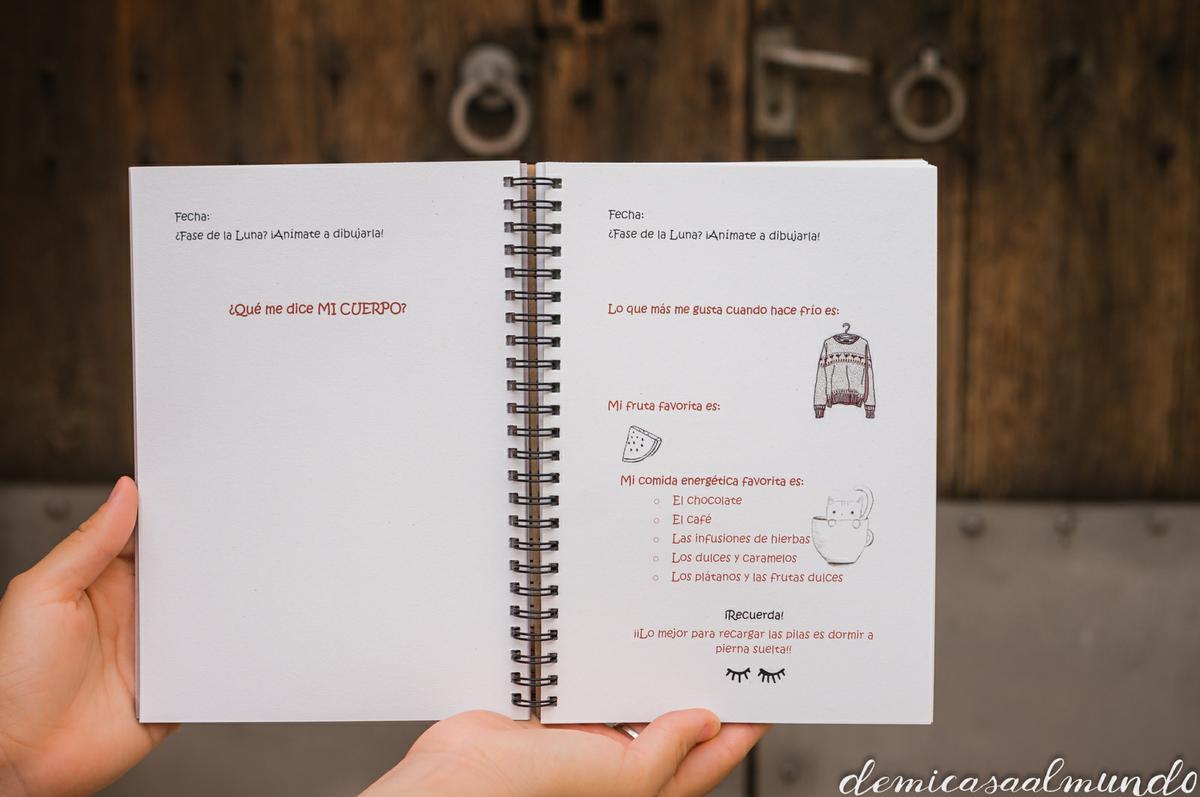 Fecha:
¿Fase de la Luna? ¡Anímate a dibujarla!
¿Qué me dice MI CUERPO?
Fecha:
¿Fase de la Luna? ¡Anímate a dibujarla!
Lo que más me gusta cuando hace frío es:
Mi fruta favorita es:
Mi comida energética favorita es:
○ El chocolate
○ El café
○ Las infusiones de hierbas
○ Los dulces y caramelos
○ Los plátanos y las frutas dulces
¡Recuerda!
¡¡Lo mejor para recargar las pilas es dormir a
pierna suelta!!
demicasaalmundo